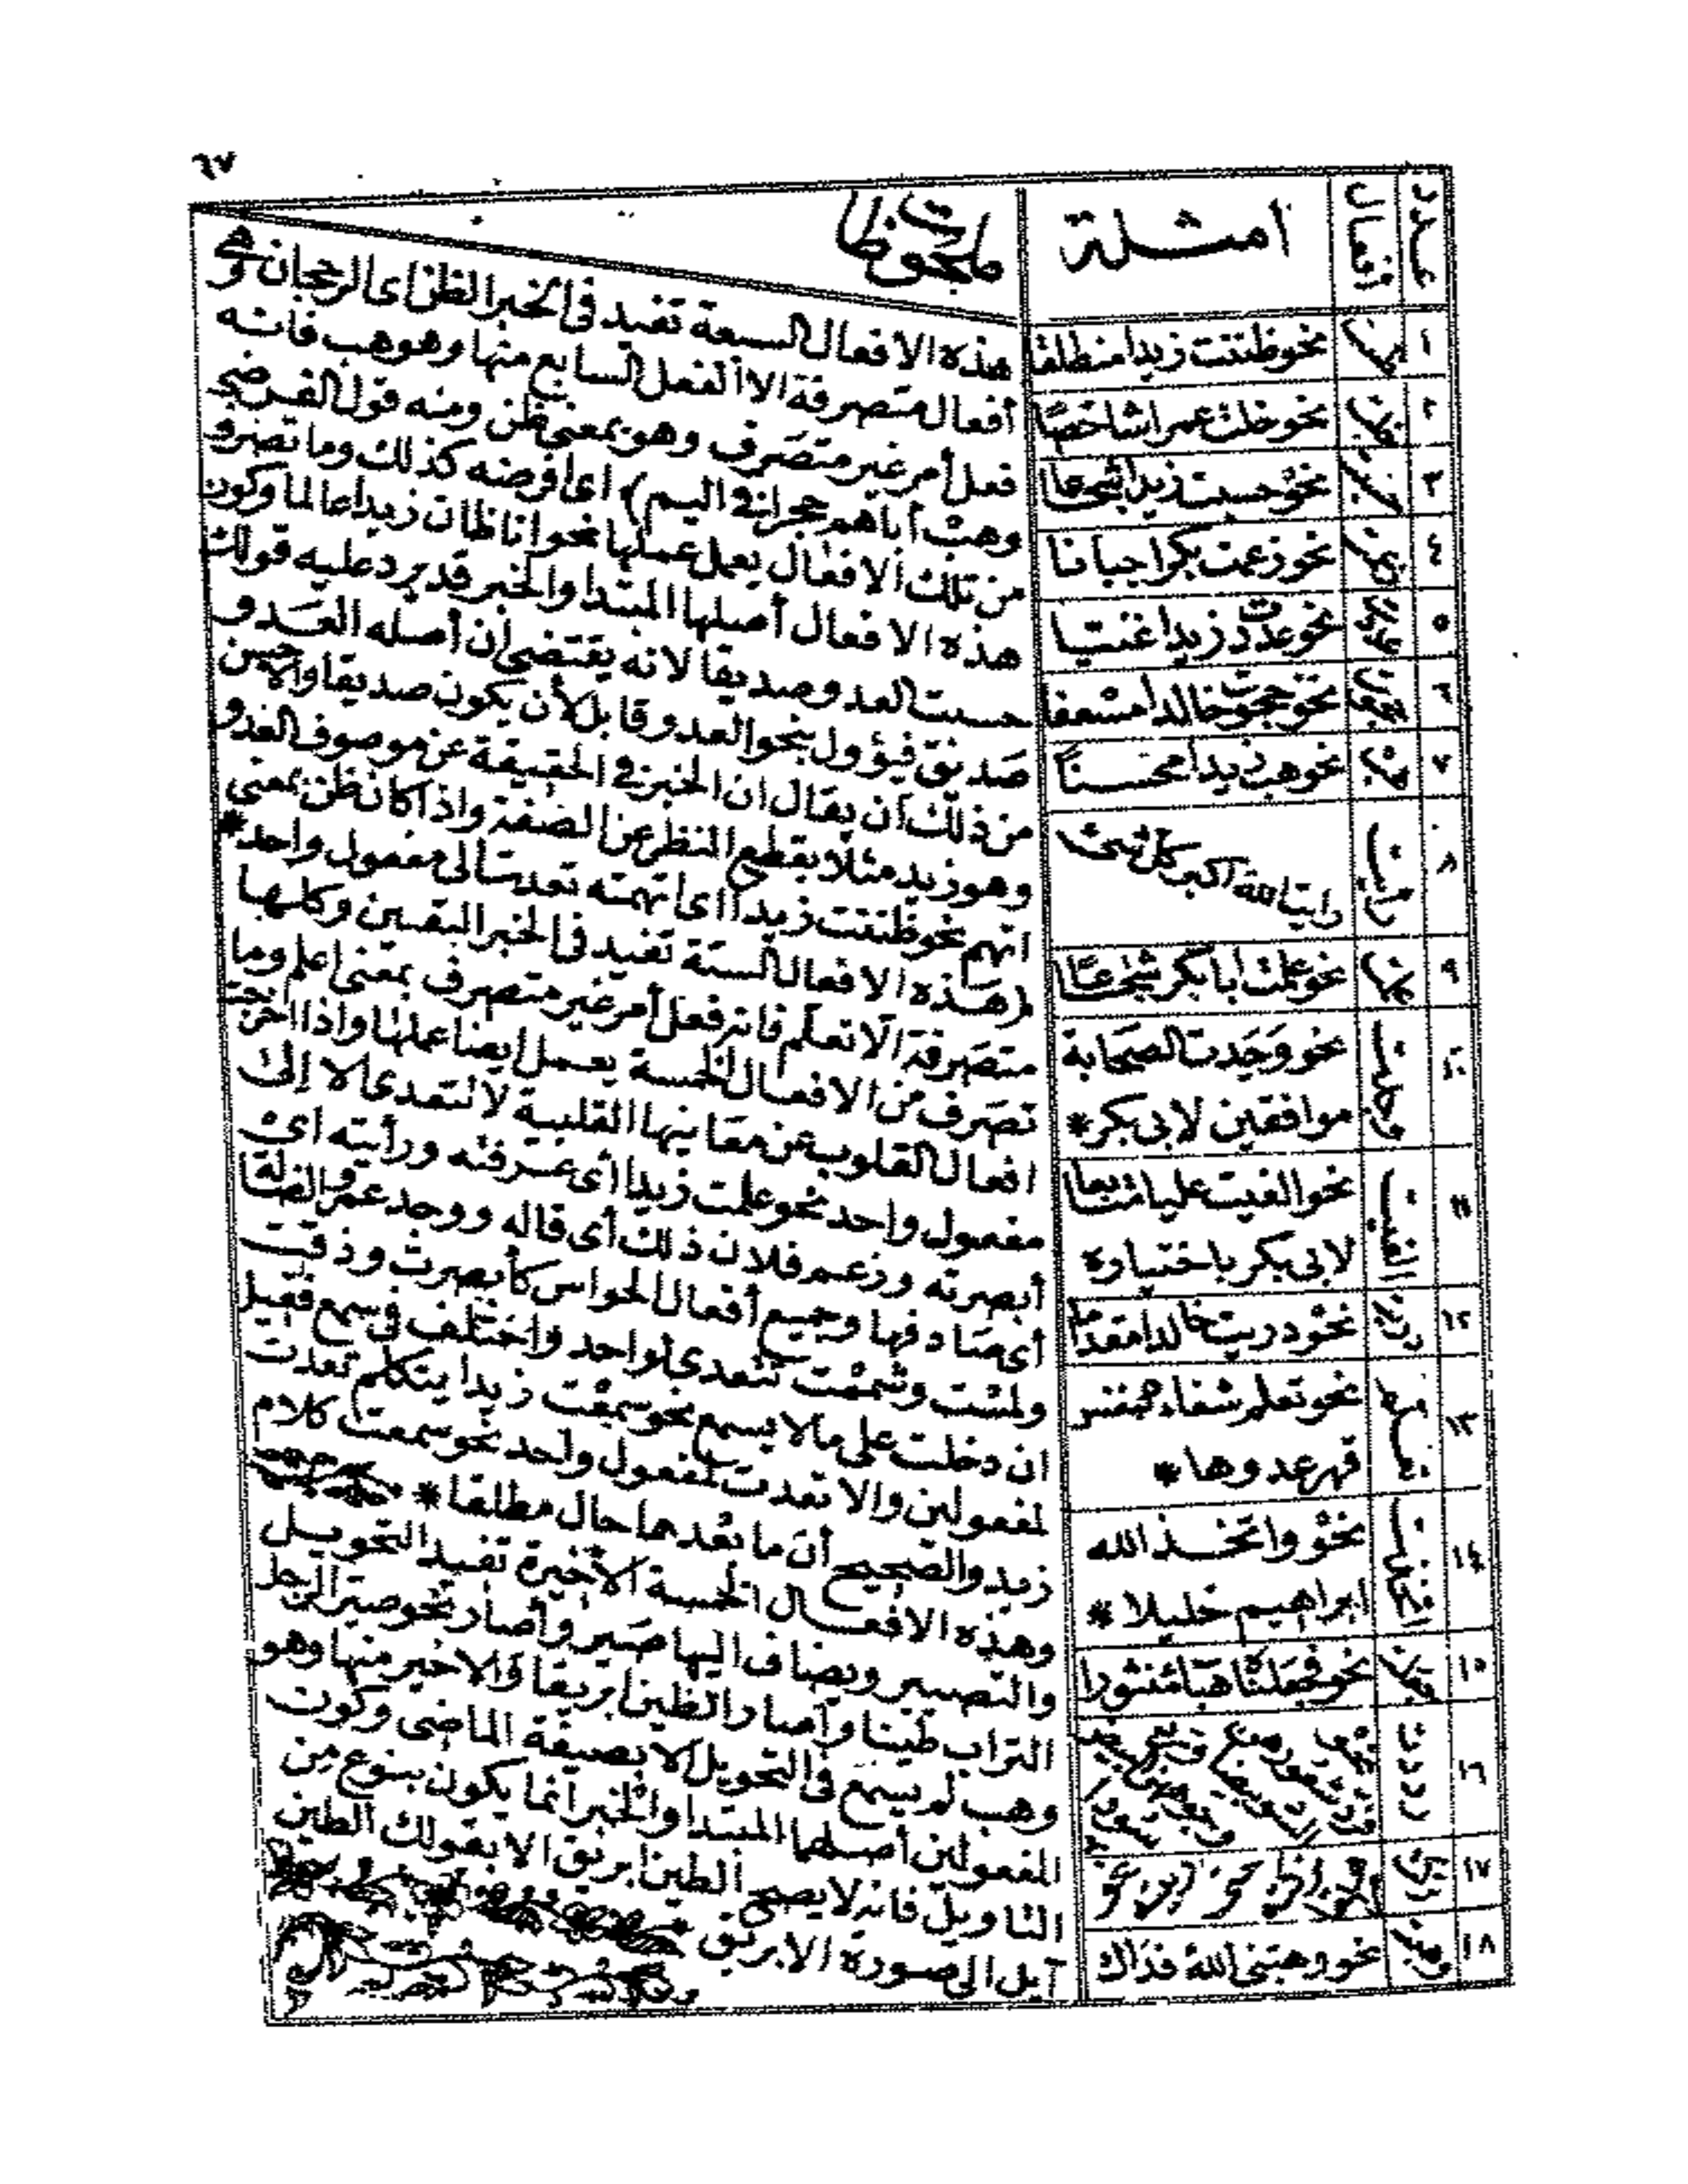 ٦٧
عدد
افعال
امثلة
ملحوظات
١ ظننت نحو ظننت زيدا منطلقا
٢ خلت نحو خلت عمرا شاخصًا
٣ حسبت نحو حسبت زيدا شجاعا
٤ زعمت نحو زعمت بكرا جبانا
٥ عددت نحو عددت زيدا غنيا
٦ حجوت نحو حجوت خالدا مسعفا
٧ هب نحو هب زيدا محسنًا
٨ رايت رايت الله اكبر كل شئ
٩ علمت نحو علمت ابا بكر شجاعًا
١٠ وجدت نحو وجدت الصحابة
موافقين لابى بكر *
١١ الفيت نحو الفيت عليا متابعا
لابى بكر باختياره
١٢ دريت نحو دريت خالدا مقدمًا
١٣ تعلم نحو تعلم شفاء النفس
قهر عدوها *
١٤ اتخذت نحو واتخـذ الله
ابراهيم خليلا *
١٥ جعلت نحو فجعلناه هباء منثورا
١٦ رددت
١٧
١٨ وهبت نحو وهبتنى الله فداك
هذه الافعال السبعة تفيد فى الخبر الظن اى الرجحان وهى
أفعال متصرفة الا الفعل السابع منها وهو هب فانه
فعل أمر غير متصرف وهو بمعنى ظن ومنه قول الفرضى
وهب أباهم حجرا فى اليم) اى افرضه كذلك وما تصرف
من تلك الافعال يعمل عملها نحو انا ظان زيدا عالما وكون
هذه الافعال أصلها المبتدا والخبر قد يرد عليه قولك
حسبت العدو صديقا لانه يقتضى ان أصله العدو
صديق فيؤول بنحو العدو قابل لأن يكون صديقا والاحسن
من ذلك أن يقال ان الخبر فى الحقيقة عن موصوف العدو
وهو زيد مثلا بقطع النظر عن الصفة واذا كان ظن بمعنى
اتهم نحو ظننت زيدا اى اتهمته تعدت الى مفعول واحد *
(هذه الافعال الستة تفيد فى الخبر اليقين وكلها
متصرفة الا تعلم فانه فعل أمر غير متصرف بمعنى اعلم وما
تصرف من الافعال الخمسة يعمل ايضا عملها واذا اخرجت
افعال القلوب عن معانيها القلبية لا تتعدى الا الى
مفعول واحد نحو علمت زيدا أى عرفته ورأيته اى
أبصرته وزعم فلان ذلك أى قاله ووجد عمرو الضالة
أى صادفها وجميع أفعال الحواس كأبصرت وذقت
ولمست وشممت تتعدى لواحد واختلف فى سمع فقيل
ان دخلت على ما لا يسمع نحو سمعت زيدا يتكلم تعدت
لمفعولين والا تعدت لمفعول واحد نحو سمعت كلام
زيد والصحيح أن ما بعدهما حال مطلقا *
وهذه الافعال الخمسة الاخيرة تفيد التحويل
والتصيير ويضاف اليها صير وأصار نحو صير الرجل
التراب طينا وأصار الطين ابريقا والاخير منها وهو
وهب لم يسمع فى التحويل الا بصيغة الماضى وكون
المفعولين أصلهما المبتدا والخبر انما يكون بنوع من
التاويل فانه لا يصح الطين ابريق الا بقولك الطين
آيل الى صورة الابريق *